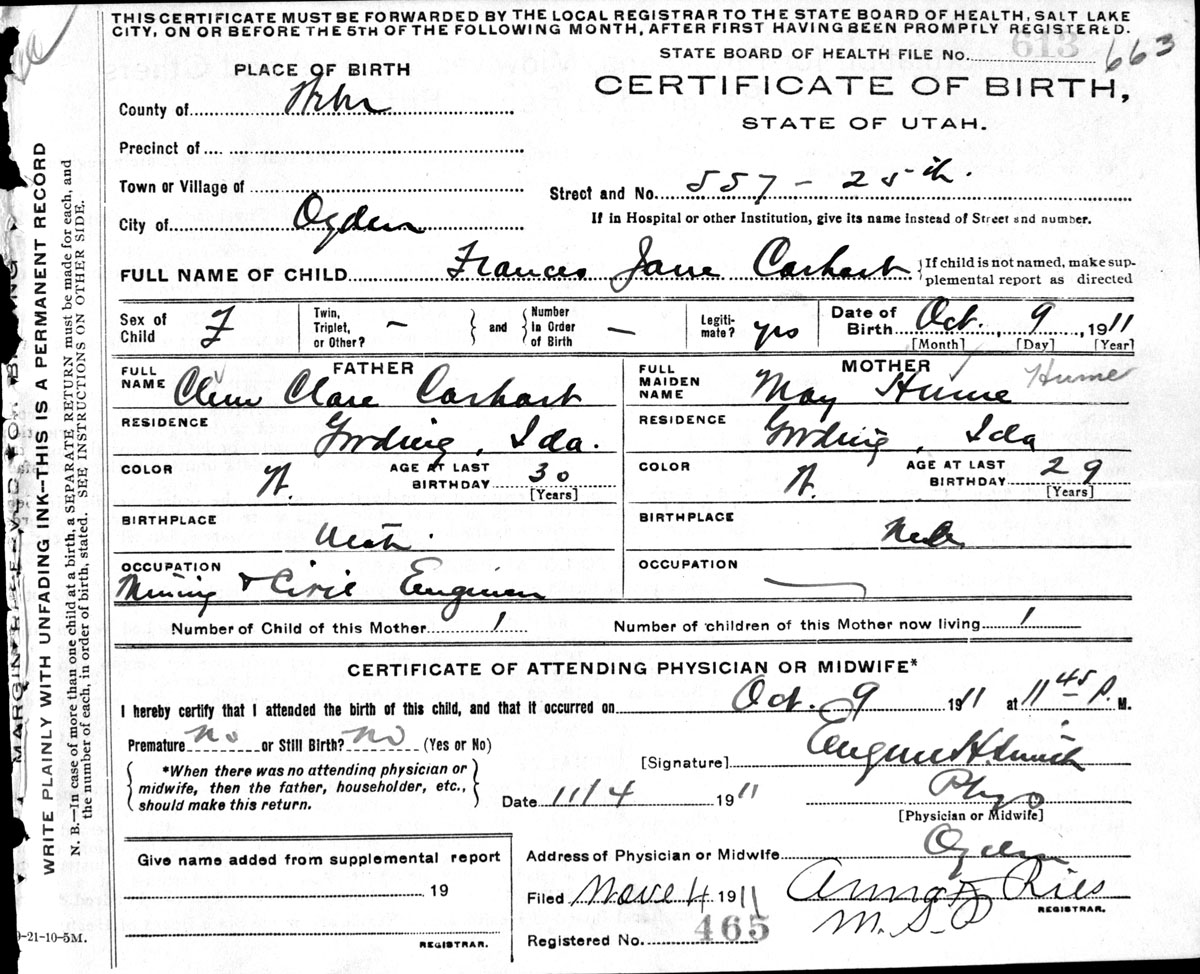 THIS CERTIFICATE MUST BE FORWARDED BY THE LOCAL REGISTRAR TO THE STATE BOARD OF HEALTH, SALT LAKE
CITY, ON OR BEFORE THE 5TH OF THE FOLLOWING MONTH, AFTER FIRST HAVING BEEN PROMPTLY REGISTERED.
STATE BOARD OF HEALTH FILE No. 613 663
PLACE OF BIRTH
CERTIFICATE OF BIRTH,
STATE OF UTAH.
County of
Precinct of
Town or Village of
Street and No. 557 - 25th.
City of Ogden
If in Hospital or other Institution, give its name instead of Street and number.
FULL NAME OF CHILD Frances Jane Carhart { If child is not named, make sup-
plemental report as directed
Sex of Child F
Twin, Triplet, or Other? —
and
Number in Order of Birth —
Legiti-mate? yes
Date of Birth Oct. 9, 1911
[Month] [Day] [Year]
FATHER
FULL NAME Clem Clare Carhart
MOTHER
FULL MAIDEN NAME May Hume Hume
RESIDENCE Gooding, Ida.
RESIDENCE Gooding, Ida
COLOR W. AGE AT LAST BIRTHDAY 30 [Years]
COLOR W. AGE AT LAST BIRTHDAY 29 [Years]
BIRTHPLACE
BIRTHPLACE
OCCUPATION
Mining & Civil Engineer
OCCUPATION
Number of Child of this Mother 1
Number of children of this Mother now living 1
CERTIFICATE OF ATTENDING PHYSICIAN OR MIDWIFE*
I hereby certify that I attended the birth of this child, and that it occurred on Oct. 9 1911 at 11 45 P. M.
Premature No or Still Birth? No (Yes or No)
*When there was no attending physician or
midwife, then the father, householder, etc.,
should make this return.
[Signature] Eugene H. Smith
Date 11/4 1911 Phys
[Physician or Midwife]
Give name added from supplemental report
19
REGISTRAR.
Address of Physician or Midwife Ogden
Filed Nov 4 1911 Anna F Ries
M.S.P
REGISTRAR.
Registered No. 465
-21-10-5M.
MARGIN RESERVED FOR BINDING
WRITE PLAINLY WITH UNFADING INK--THIS IS A PERMANENT RECORD
N. B.—In case of more than one child at a birth, a SEPARATE RETURN must be made for each, and
the number of each, in order of birth, stated. SEE INSTRUCTIONS ON OTHER SIDE.